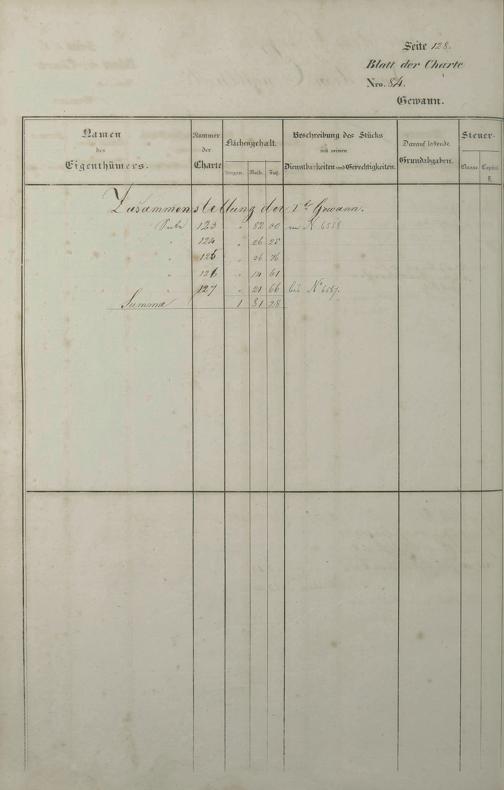 Seite 128.
Blatt der Charte
Nro. 84.
Gewann.
Namen des Eigenthümers.
Nummer der Charte
Flächengehalt.
Morgen. Ruth. Fuß.
Beschreibung des Stücks mit seinen Dienstbarkeiten und Gerechtigkeiten.
Darauf haftende Grundabgaben.
Steuer-
Classe. Capital.
Zusammenstellung der 1te Gewann.
Seite 123 " 52 00 von N 6558
" 124 " 26 25
" 125 " 26 76
" 126 " 14 61
127 " 21 66 bis N
Summa 1 81 28